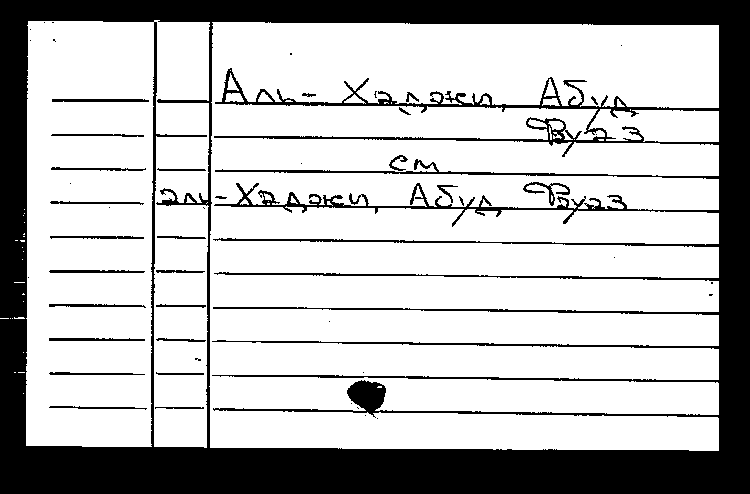 Аль-Хаджи, Абуд
Фуаз
см.
аль-Хаджи, Абуд Фуаз